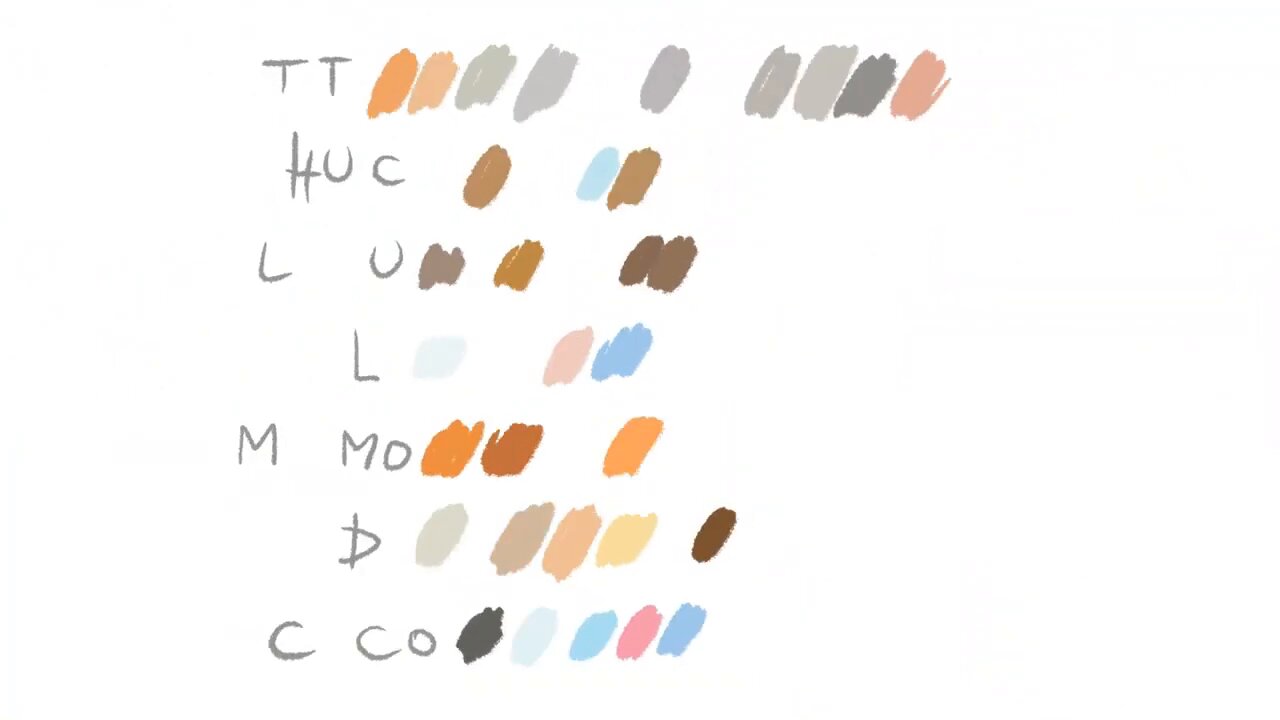 TT
HUC
L U
L
M MO
D
C CO